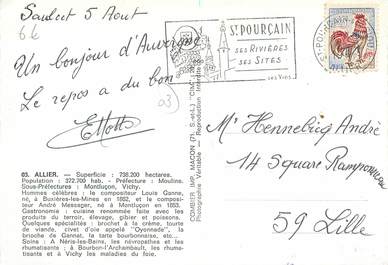 Saulcet 5 Aout
6€
Un bonjour d'Auvergne
Le repos a du bon
03
ST POURÇAIN
SES RIVIÈRES
SES SITES
SES VINS
Mr Hennebicq André
14 Square Rameponneau
59 Lille
03. ALLIER. — Superficie : 738.200 hectares.
Population : 372.700 hab. - Préfecture : Moulins.
Sous-Préfectures : Montluçon, Vichy.
Hommes célèbres : le compositeur Louis Ganne,
né à Buxières-les-Mines en 1862, et le compo-
siteur André Messager, né à Montluçon en 1853.
Gastronomie : cuisine renommée faite avec les
produits du terroir, élevage, gibier et poissons.
Quelques spécialités : brochet à la crème, tourte
de viande, civet d'oie appelé "Oyonnade", la
brioche de Gannat, la tarte bourbonnaise, etc...
Soins : A Néris-les-Bains, les névropathes et les
rhumatisants ; à Bourbon-l'Archambault, les rhu-
matisants et à Vichy les maladies du foie.
COMBIER IMP. MACON (Pl. S.-et-L.) "CIM"
Photographie Véritable - Reproduction Interdite